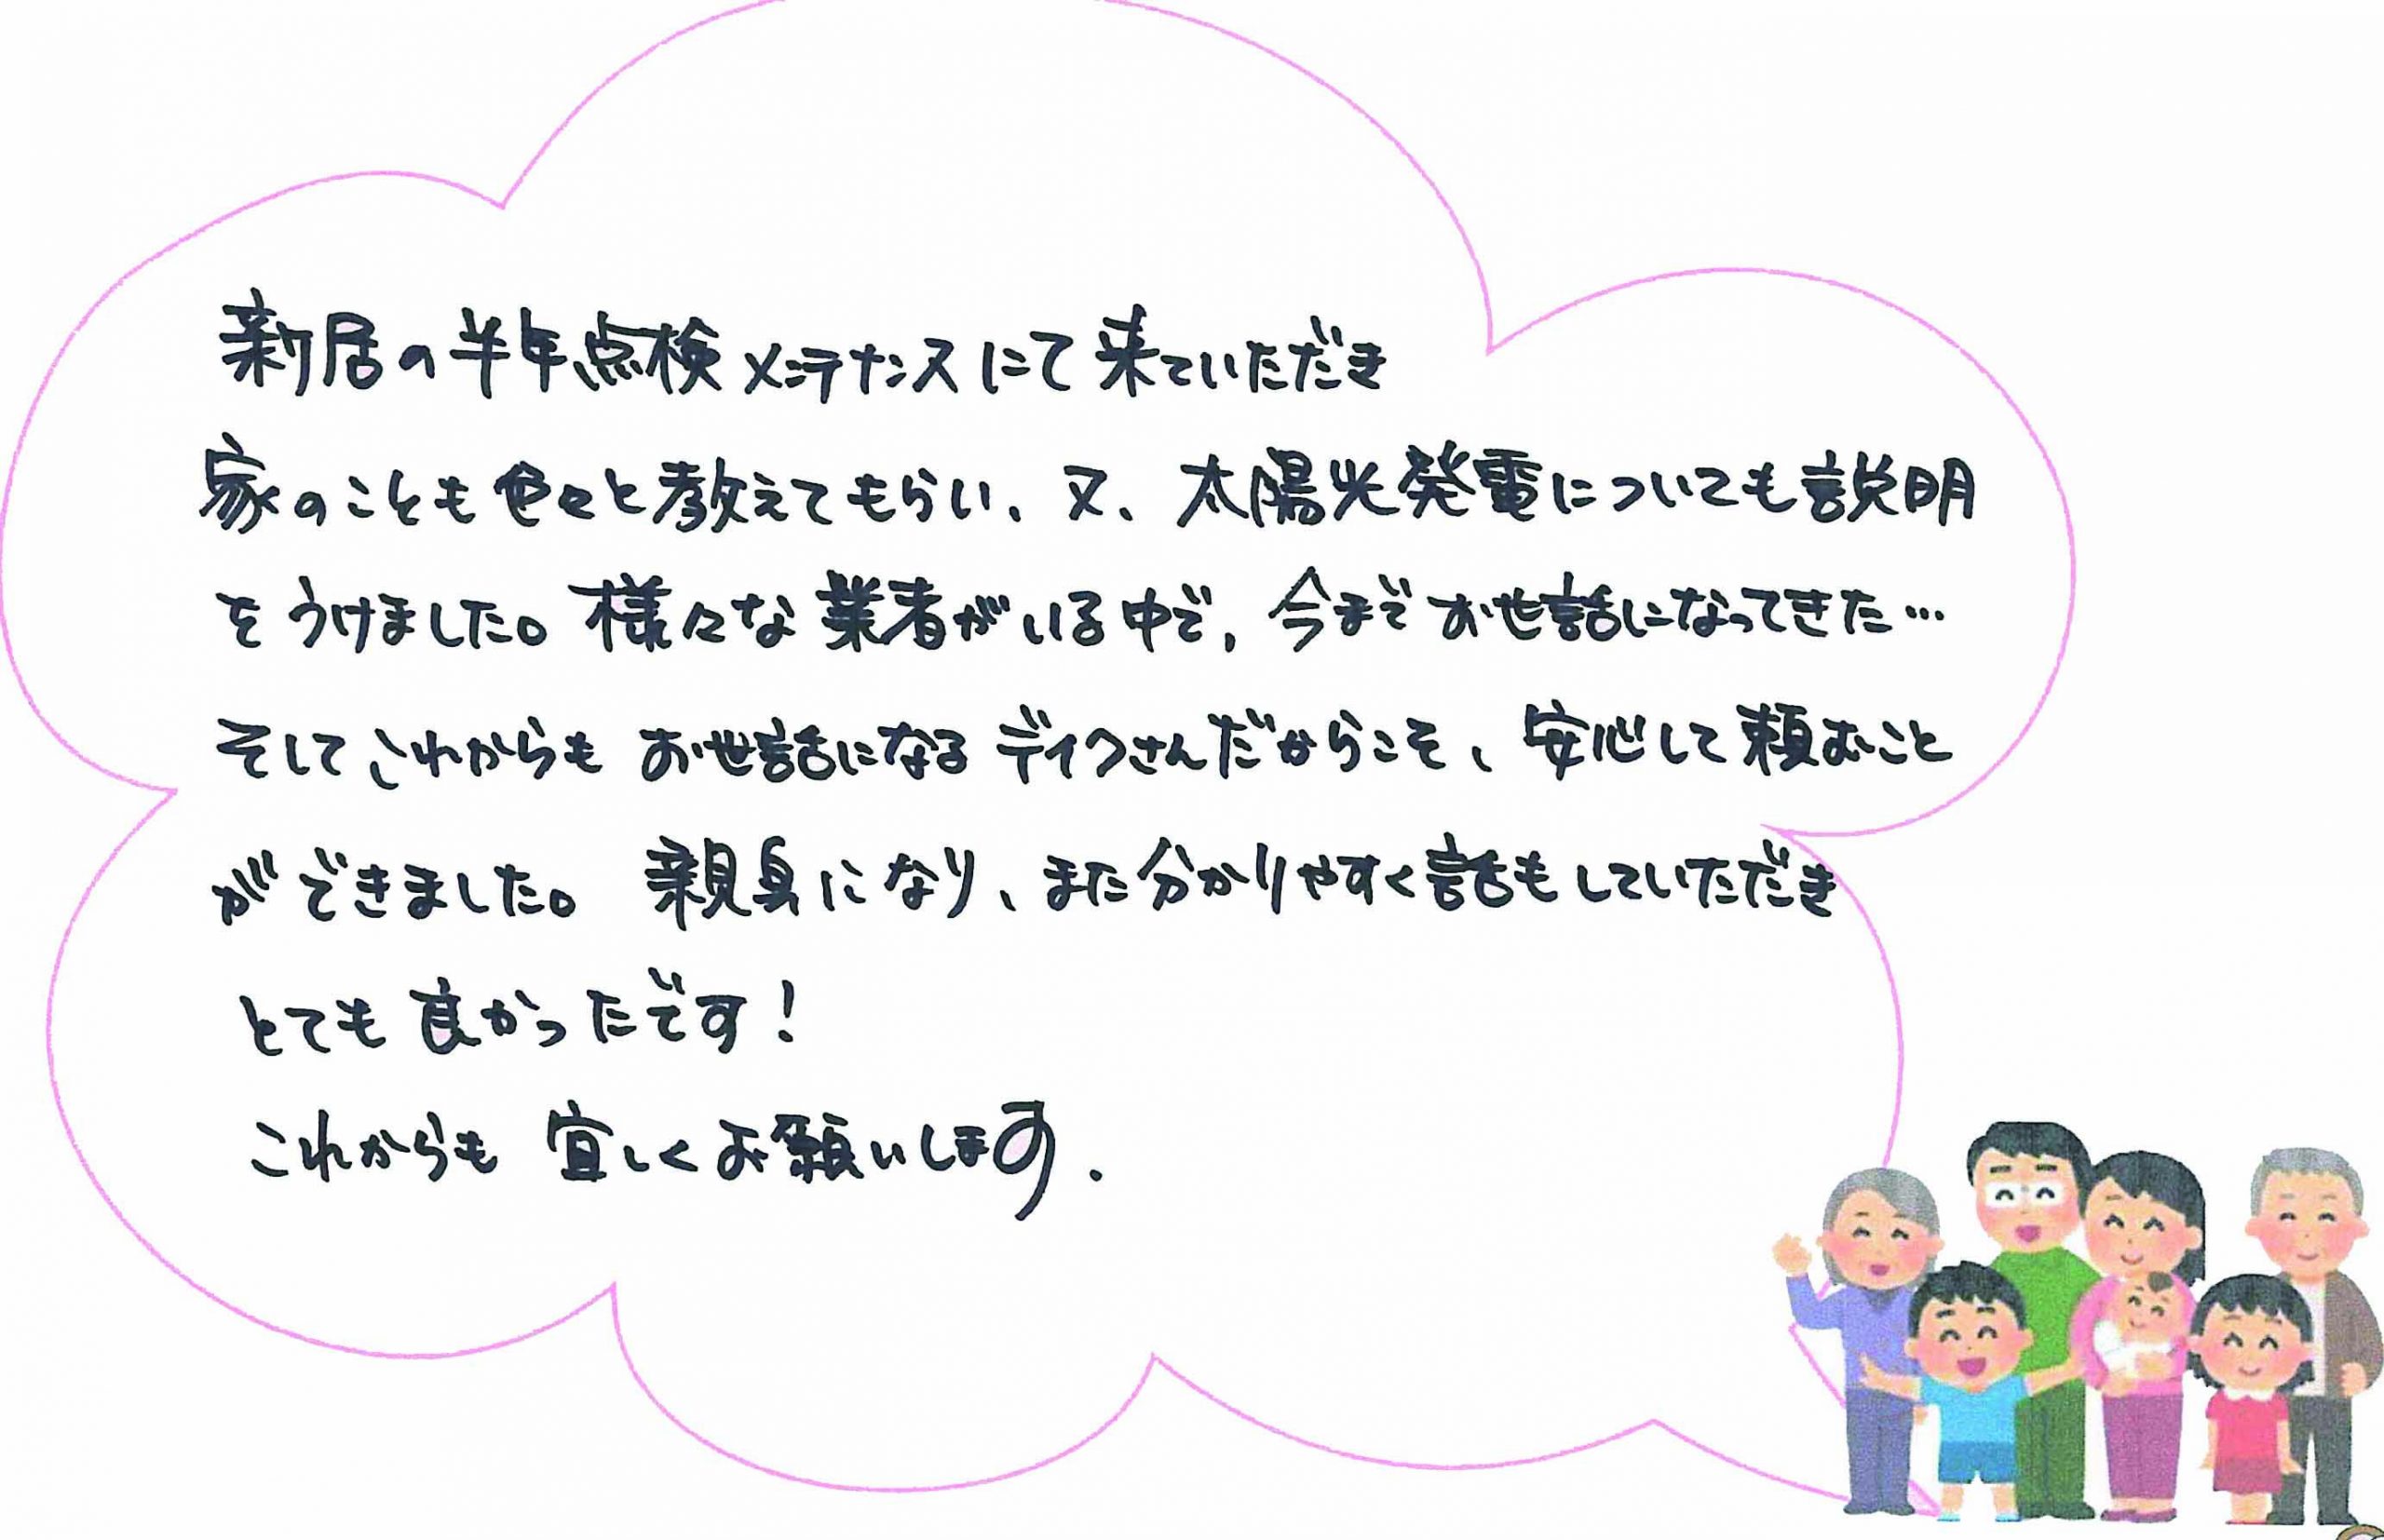 新居の半年点検メンテナンスにて来ていただき
家のことも色々と教えてもらい、又、太陽光発電についても説明
をうけました。様々な業者がいる中で、今までお世話になってきた…
そしてこれからもお世話になるディクさんだからこそ、安心して頼むこと
ができました。 親身になり、また分かりやすく話もしていただき
とても良かったです！
これからも宜しくお願いします.